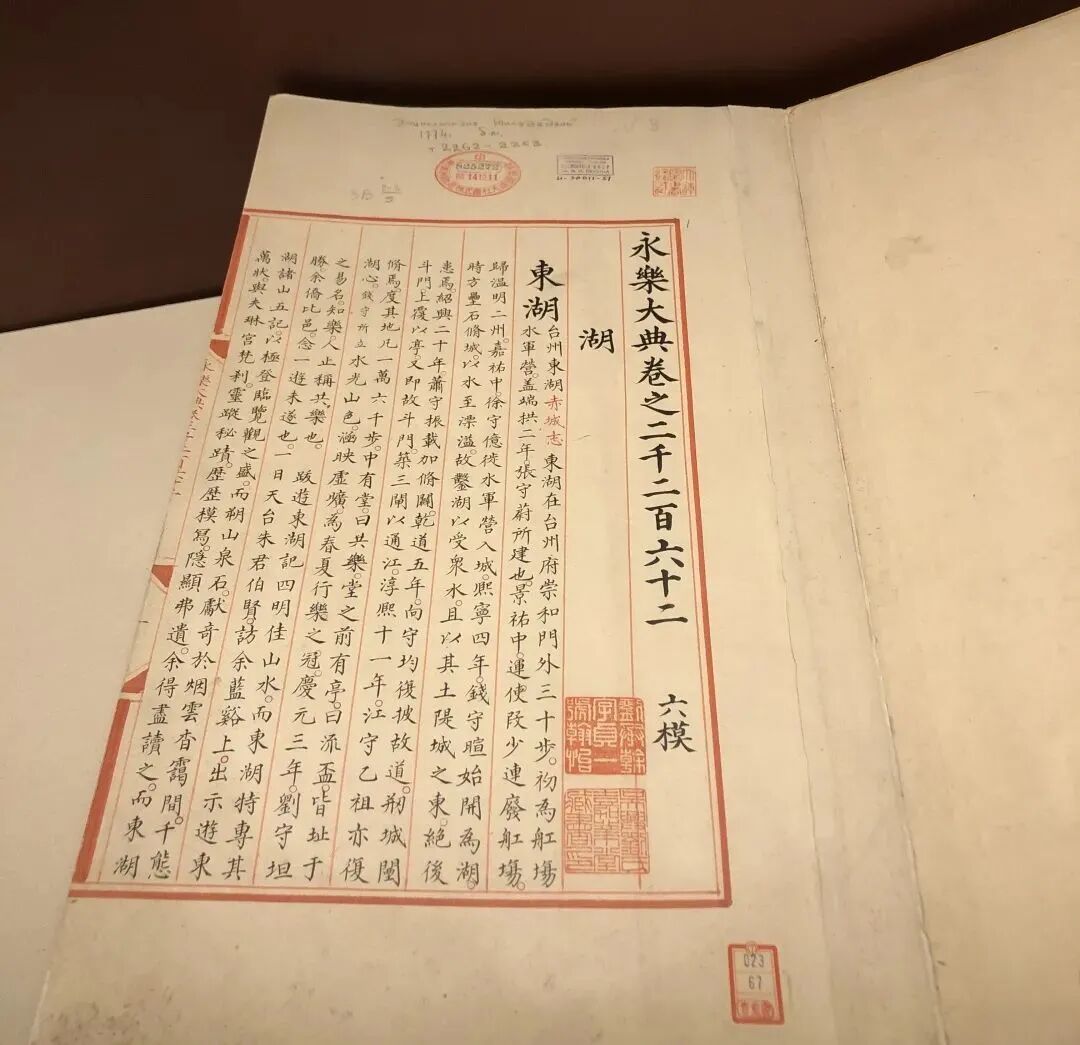 永樂大典卷之二千二百六十二 六模
湖
東湖
台州東湖赤城志東湖在台州府崇和門外三十步。初為舡塲
水軍營。盖端拱二年。張守蔚所建也。景祐中。運使段少連廢舡塲。
歸温明二州。嘉祐中。徐守億徙水軍營入城。熙寧四年。錢守暄始開為湖。
時方壘石脩城。以水至漂溢。故鑿湖以受衆水。且以其土隄城之東。絶後
患焉。紹興二十年。蕭守振載加脩闢。乾道五年。尚守均復披故道。剏城闉
斗門上覆以亭。又即故斗門。築三閘以通江。淳熙十一年。江守乙祖亦復
脩焉。度其地凡一萬六千步。中有堂。曰共樂。堂之前有亭。曰流盃。皆址于
湖心。錢守所立水光山色。涵映虛曠。為春夏行樂之冠。慶元三年。劉守坦
之易名。知樂。人止稱共樂也。 跋遊東湖記四明佳山水。而東湖特專其
勝。余僑比邑。念一遊未遂也。一日天台朱君伯賢。訪余藍谿上。出示遊東
湖諸山五記。以極登臨覽觀之盛。而朔山泉石。獻奇於烟雲杳靄間。千態
萬狀。與夫琳宮梵刹。靈蹤秘蹟。歷歷模寫。隱顯弗遺。余得盡讀之。而東湖
劉承幹字貞一號翰怡
吳興劉氏嘉業堂藏書印
023
67